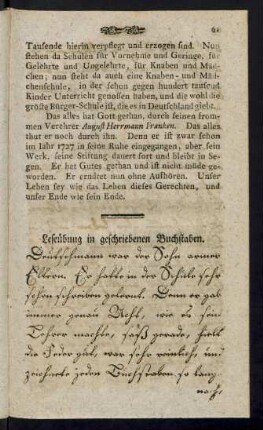 61
Tausende hierin verpflegt und erzogen sind. Nun
stehen da Schulen für Vornehme und Geringe, für
Gelehrte und Ungelehrte, für Knaben und Mäd-
chen; nun steht da auch eine Knaben- und Mäd-
chenschule, in der schon gegen hundert tausend
Kinder Unterricht genossen haben, und die wohl die
größte Bürger-Schule ist, die es in Deutschland giebt.
Das alles hat Gott gethan, durch seinen from-
men Verehrer August Herrmann Franken. Das alles
that er noch durch ihn. Denn er ist zwar schon
im Jahr 1727 in seine Ruhe eingegangen, aber sein
Werk, seine Stiftung dauert fort und bleibt in Se-
gen. Er hat Gutes gethan und ist nicht müde ge-
worden. Er erndtet nun ohne Aufhören. Unser
Leben sey wie das Leben dieses Gerechten, und
unser Ende wie sein Ende.
Leseübung in geschriebenen Buchstaben.
Deutschmann war der Sohn armer
Eltern. Er hatte in der Schule sehr
schön schreiben gelernt. Denn er gab
immer genau Acht, wie es sein
Lehrer machte, saß gerade, hielt
die Feder gut, war sehr reinlich, und
zeichnete jeden Buchstaben so lang
nach,